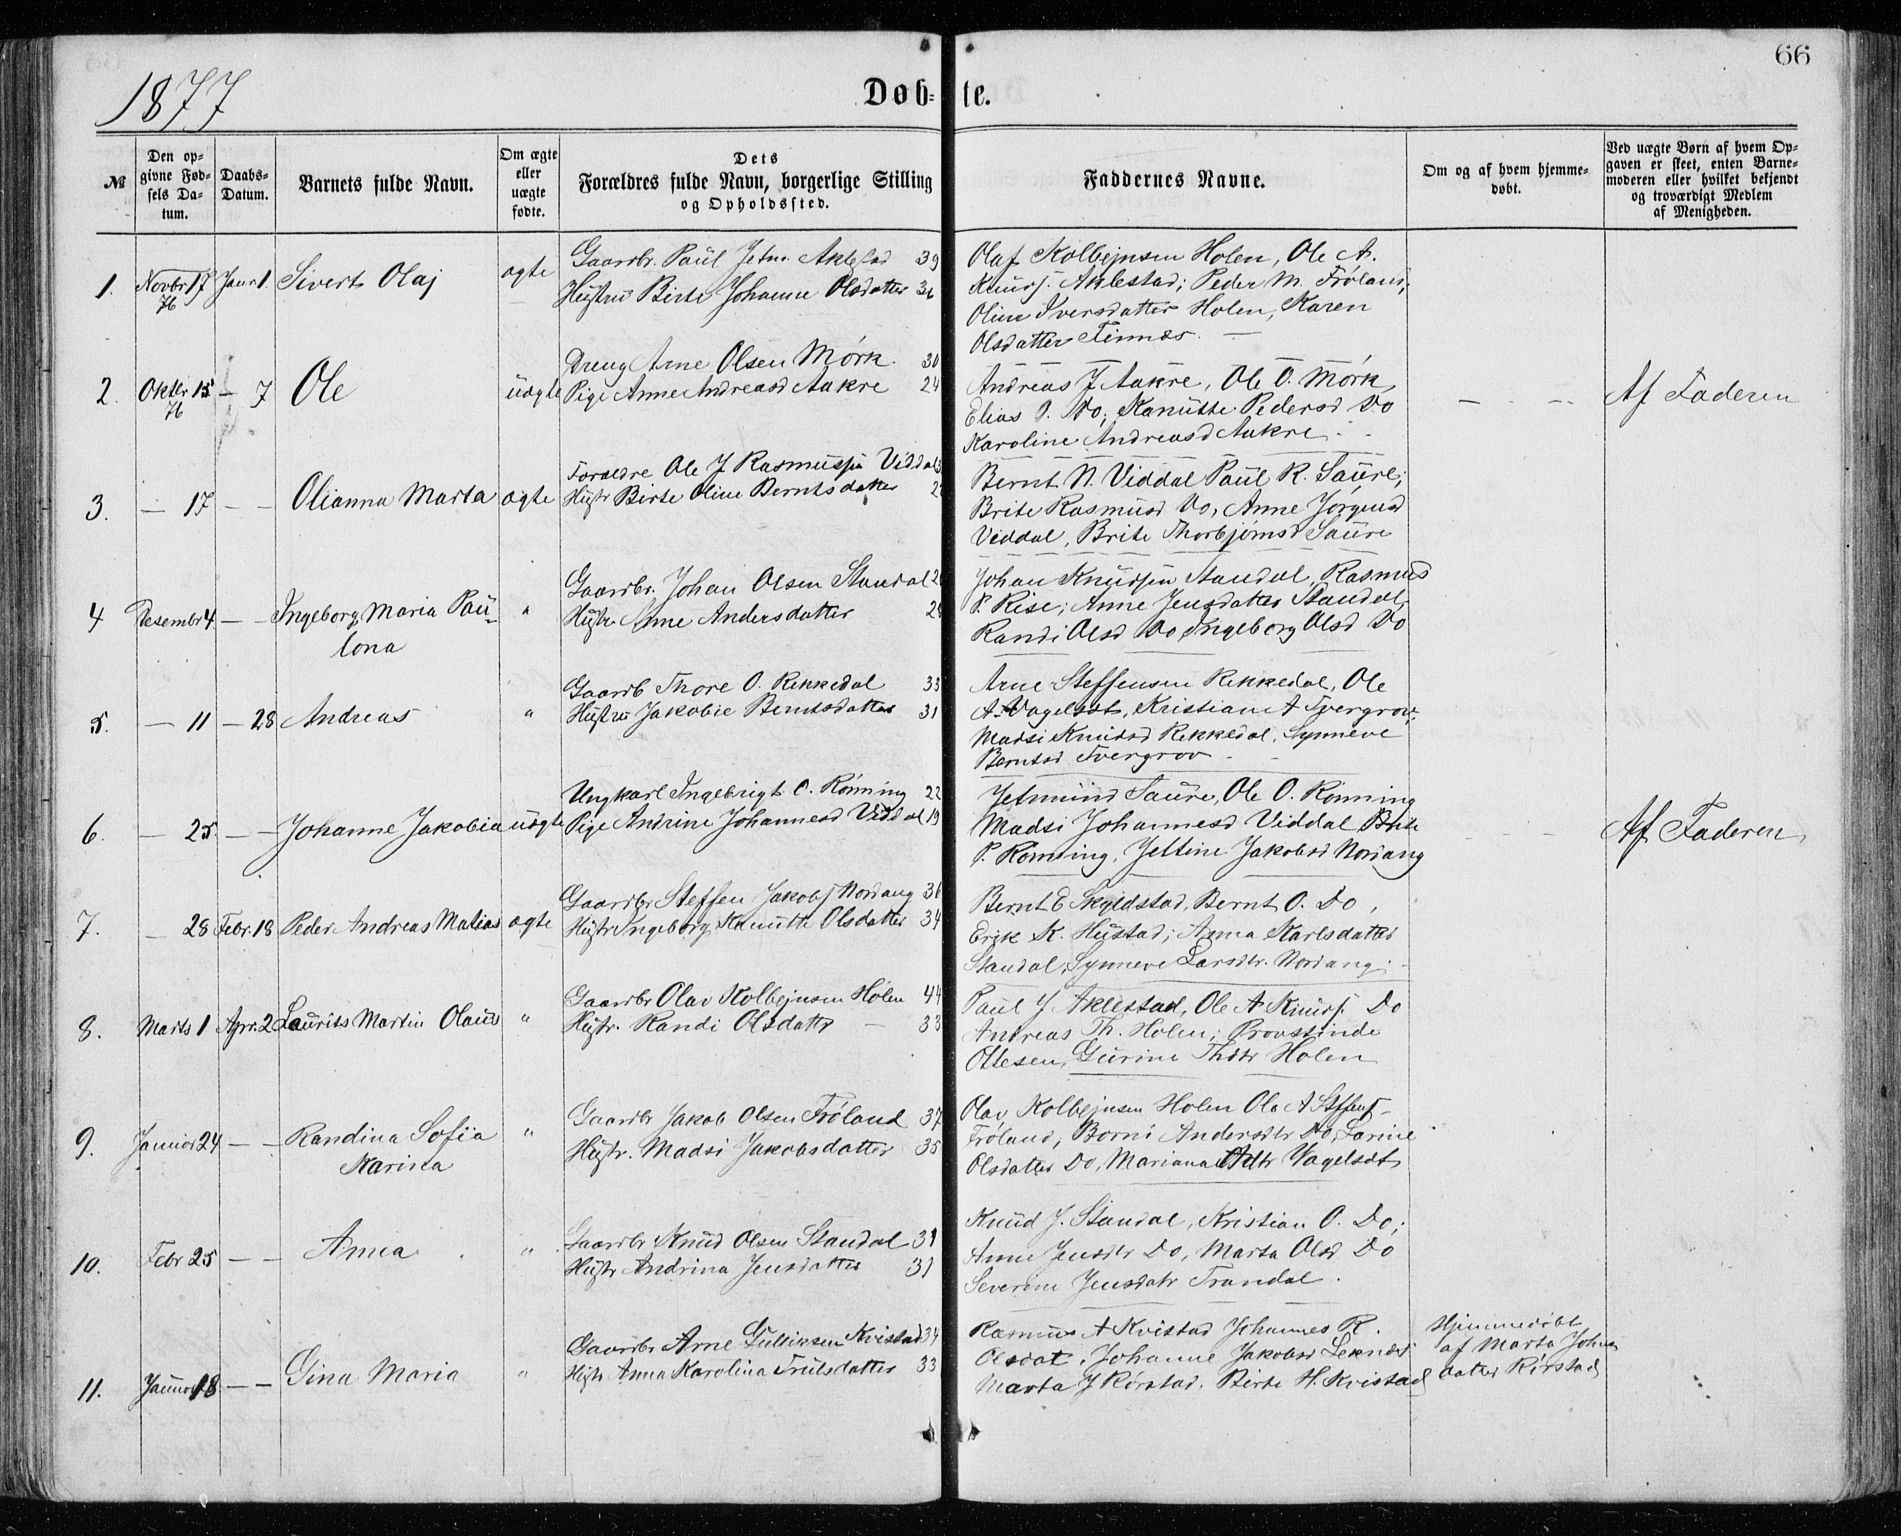 66
1877
Døb- te.
№
Den op-
givne Fød-
sels Da-
tum.
Daabs-
Datum.
Barnets fulde Navn.
Om ægte
eller
uægte
fødte.
Dets
Forældres fulde Navn, borgerlige Stilling
og Opholdssted.
Faddernes Navne.
Om og af hvem hjemme-
døbt.
Ved uægte Børn af hvem Op-
gaven er skeet, enten Barne-
moderen eller hvilket bekjendt
og troværdigt Medlem
af Menigheden.
1. Novbr 17 76 Janr 1. Sivert Olaj ægte
Gaardbr. Paul Jetm. Aklestad 39
Hustru Birte Johanne Olsdatter 36
Olaf Kolbejnsen Holen, Ole A.
Knuds. Aklestad; Peder M. Frøland;
Oline Iversdatter Holen, Karen
Olsdatter Finnæs.
2. Oktbr 15 76 – 7 Ole uægte
Dreng Arne Olsen Mørk. 30
Pige Anne Andreasd Aakre 24
Andreas J Aakre, Ole O. Mørk
Elias P. Do; Kanutte Pedersd Do
Karoline Andreasd Aakre
Af Faderen
3. – 17 – – Olianna Marta ægte
Forældre Ole J Rasmussen Viddal
Hustr Birte Oline Berntsdatter
Bernt N. Viddal Paul R. Saure;
Brite Rasmusd Do, Anne Jørgensd
Viddal, Brite Thorbjørnsd Saure
4 Desembr 4. – – Ingeborg Maria Pau-
lona "
Gaardbr. Johan Olsen Standal
Hustr. Anne Andersdatter
Johan Knudsen Standal, Rasmus
P. Rise; Anne Jensdatter Standal,
Randi Olsd Do, Ingeborg Olsd Do
5. – 11 – 28 Andreas "
Gaardb Thore O. Rekkedal 33
Hustru Jakobie Berntsdatter 31
Arne Steffensen Rekkedal, Ole
A. Vagelsæt, Kristian A Tvergrov;
Madsi Knudsd Rekkedal, Synneve
Berntsd Tvergrov
6. – 25. – – Johanne Jakobia uægte
Ungkarl Ingebrigt O. Rønning 22
Pige Antrine Johannesd Viddal 19
Jetmund Saure, Ole O. Rønning
Madsi Johannesd Viddal Brite
P. Rønning, Jettine Jakobsd Nordang
Af Faderen
7. – 28 Febr. 18 Peder Andreas Matias ægte
Gaardbr Steffen Jakobs Nordang 36
Hustr Ingeborg Kanutte Olsdatter 34
Bernt E Skyldstad, Bernt O. Do,
Erik K. Hustad; Anna Karlsdatter
Standal, Synneve Larsdtr. Nordang
8. Marts 1 Apr. 2 Laurits Martin Olaus "
Gaardbr Olav Kolbejnsen Holen 44
Hustr. Randi Olsdatter – 33
Paul J Aklestad, Ole A Knuds. Do
Andreas Th. Holen; Provstinde
Ottesen, Gurine Thdtr Holen
9. Januar 24 – – Randina Sofia
Karina "
Gaardbr Jakob Olsen Frøland 37
Hustr. Madsi Jakobsdatter 35
Olav Kolbejnsen Holen Ole A Steffens
Frøland, Borni Andersdtr Do, Larine
Olsdatter Do, Mariana Vagelsæt
10. Febr 25 – – Anna "
Gaardbr Knud Olsen Standal 31
Hustr Andrina Jensdatter 31
Knud J. Standal, Kristian O. Do;
Anne Jensdtr Do, Marta Olsd Do
Severine Jensdatr Trandal.
11. Januar 18 – – Gina Maria "
Gaardbr Arne Gulliksen Kvistad 34
Hustr Anna Karolina Trulsdatter 33
Rasmus A Kvistad Johannes R.
Olsdat, Johanne Jakobsd Leknæs
Marta J Rørstad. Birte H. Kvistad
Hjemmedøbt
af Marta Johns
datter Rørstad